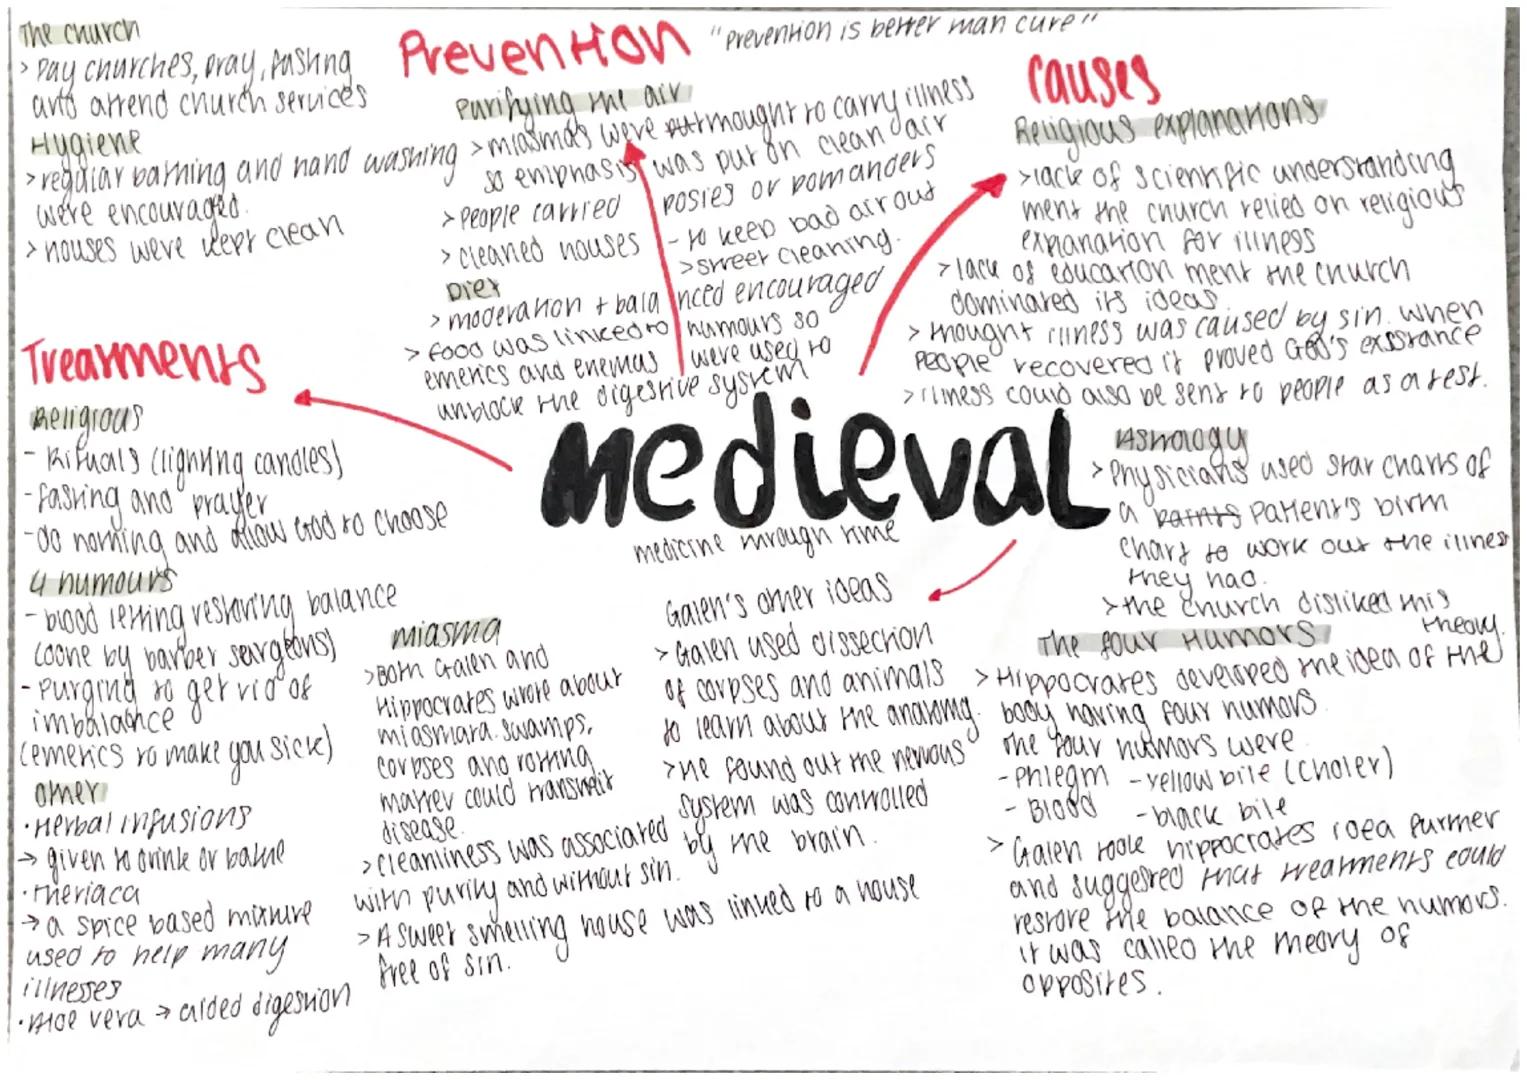 The church
> Pay churches, pray, fasting
and attend church services
Hygiene
> regular bathing and hand washing
were encouraged.
> houses were kept clean
Prevention
"Prevention is better than cure"
Purifying the air
> miasmas were thought to carry illness
so emphasis was put on clean air
> People carried posies or pomanders
- to keep bad air out
> cleaned houses
> street cleaning.
Diet
> moderation + balanced encouraged
> food was linked to humours so
emetics and enemas were used to
unblock the digestive system
causes
Religious explanations
> lack of scientific understanding
ment the church relied on religious
explanation for illness
> lack of education ment the church
dominated its ideas.
> thought illness was caused by sin. when
people recovered it proved God's existance
> illness could also be sent to people as a test.
Treatments
Religious
- Rituals (lighting candles)
- fasting and prayer
- do nothing and allow God to choose
4 humours
- blood letting restoring balance
(done by barber seurgeons)
- Purging to get rid of
imbalance
(emetics to make you sick)
other
• Herbal infusions
→ given to drink or bathe
• theriaca
→ a spice based mixture
used to help many
illnesses
• Aloe vera → aided digestion
medieval
medicine through time
miasma
> Both Galen and
Hippocrates wrote about
miasmara. swamps,
corpses and rotting
matter could transmit
disease.
> cleanliness was associated
with purity and without sin.
> A sweet smelling house was linked to a house
free of sin.
Galen's other ideas
> Galen used dissection
of corpses and animals
to learn about the anatomy.
> he found out the nervous
system was controlled
by the brain.
Astrology
> Physicians used star charts of
a patients Patient's birth
chart to work out the illness
they had.
> the church disliked this
theory.
The four Humors
> Hippocrates developed the idea of the
body having four humors.
The four humors were
- Phlegm - yellow bile (choler)
- Blood - black bile
> Galen took hippocrates idea further
and suggested that treatments could
restore the balance of the humors.
it was called the theory of
opposites.